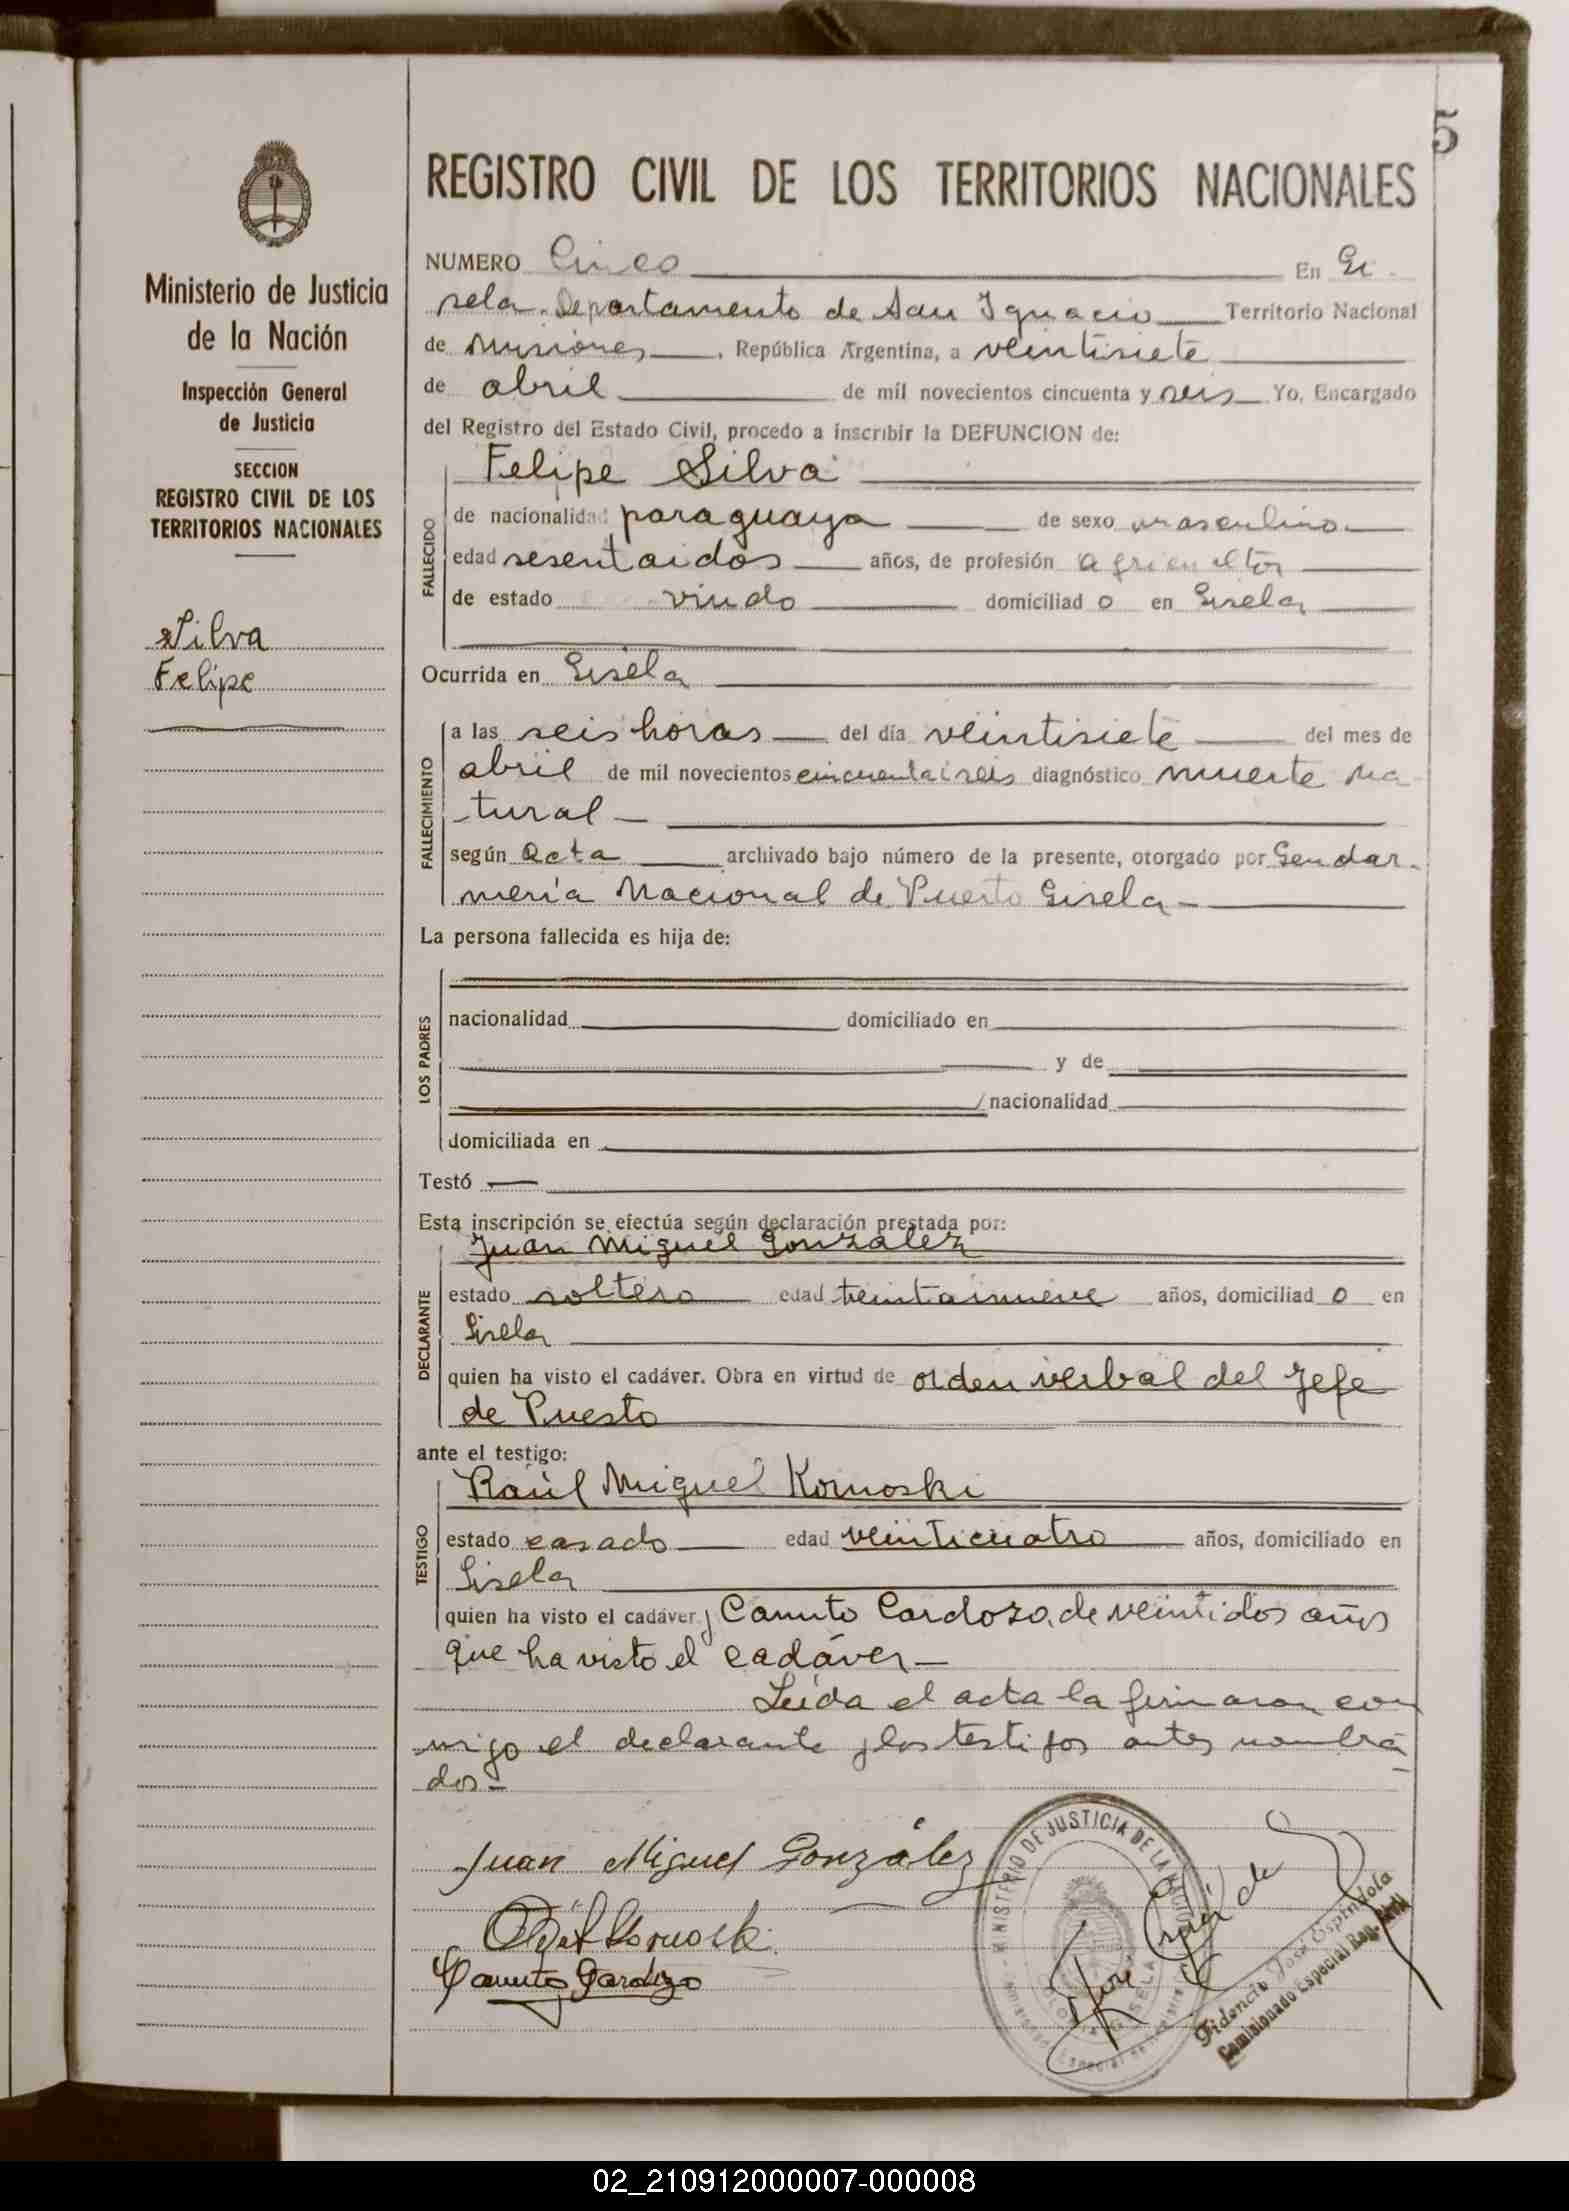 5
REGISTRO CIVIL DE LOS TERRITORIOS NACIONALES
Ministerio de Justicia
de la Nación
Inspección General
de Justicia
SECCION
REGISTRO CIVIL DE LOS
TERRITORIOS NACIONALES
Silva
Felipe
NUMERO Cinco En Gi
sela. Departamento de San Ignacio Territorio Nacional
de Misiones, República Argentina, a veintisiete
de abril de mil novecientos cincuenta y seis Yo, Encargado
del Registro del Estado Civil, procedo a inscribir la DEFUNCION de:
Felipe Silva
FALLECIDO
de nacionalidad paraguaya de sexo masculino
edad sesentaidos años, de profesión agricultor
de estado viudo domiciliad o en Gisela
Ocurrida en Gisela
FALLECIMIENTO
a las seis horas del día veintisiete del mes de
abril de mil novecientos cincuentaiseis diagnóstico muerte na
tural
según acta archivado bajo número de la presente, otorgado por Gendar-
mería Nacional de Puerto Gisela
La persona fallecida es hija de:
LOS PADRES
nacionalidad domiciliado en
y de
nacionalidad
domiciliada en
Testó
Esta inscripción se efectúa según declaración prestada por:
Juan Miguel González
DECLARANTE
estado soltero edad treintainueve años, domiciliad o en
Gisela
quien ha visto el cadáver. Obra en virtud de orden verbal del Jefe
de Puesto
ante el testigo:
Raúl Miguel Kornoski
TESTIGO
estado casado edad veinticuatro años, domiciliado en
Gisela
quien ha visto el cadáver y Canuto Cardozo, de veintidos años
que ha visto el cadáver
Leída el acta la firmaron con
migo el declarante y los testigos antes nombra
dos.
Juan Miguel González
Canuto Cardozo
MINISTERIO DE JUSTICIA DE LA NACION
GISELA
Fidencio José Espíndola
Comisionado Especial Reg. Civil
02_210912000007-000008